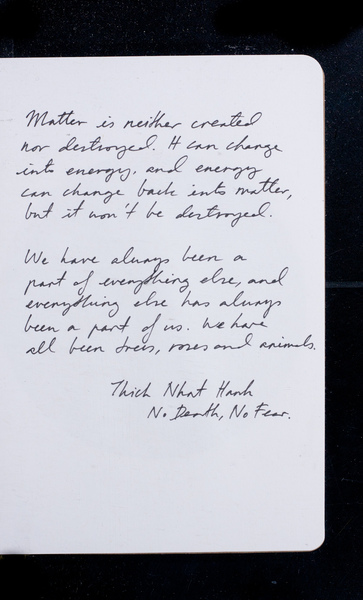 Matter is neither created
nor destroyed. It can change
into energy, and energy
can change back into matter,
but it won't be destroyed.
We have always been a
part of everything else, and
everything else has always
been a part of us. We have
all been trees, roses and animals.
Thich Nhat Hanh
No Death, No Fear.